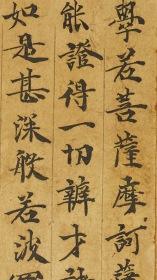 學若菩薩摩訶薩
能證得一切辯才
如是甚深般若波